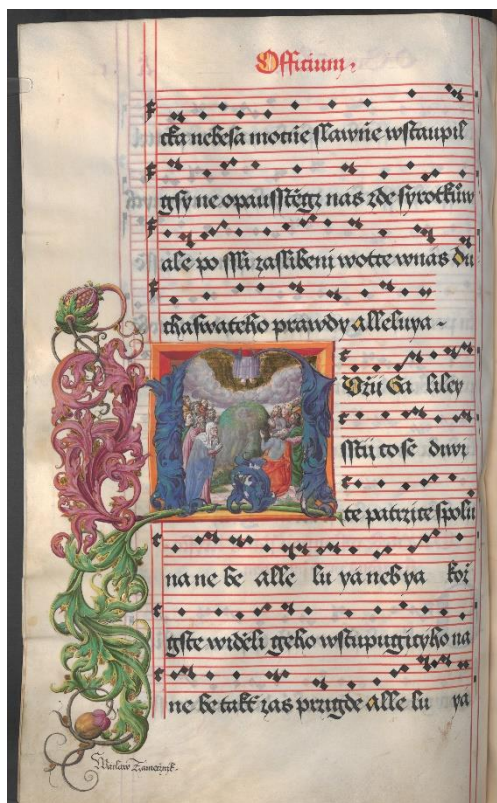 Officium
cka nebesa mocně slawně wstaupil
gsy ne opausstěgz nás zde syrotkůw
ale po ssli zaslibení wotce wnás du
cha swateho prawdy alleluya
Vžij Ga liley
sstij co se diwj
te patrzite spolu
na ne be alle lu ya neb ya kož
gste widěli geho wstupugicyho na
ne be takť zas przigde alle lu ya